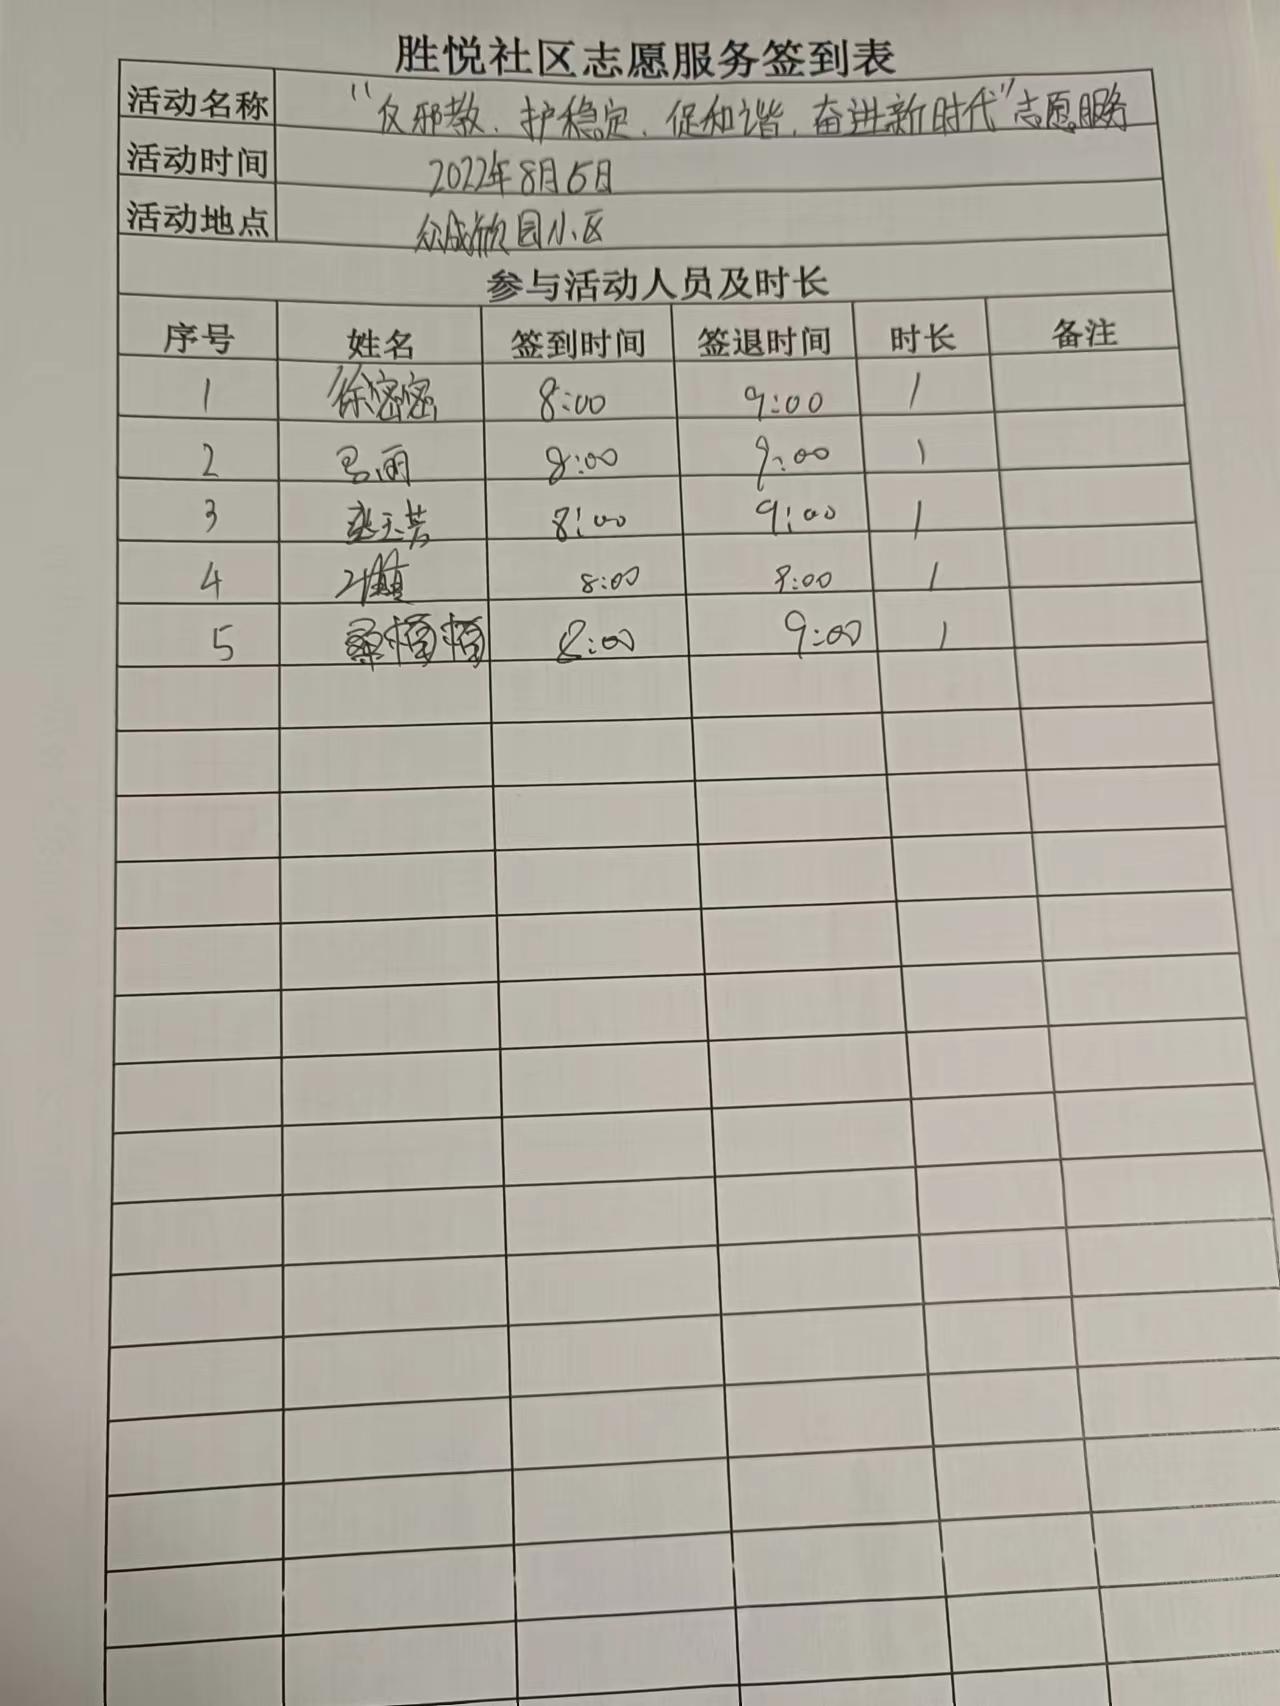 胜悦社区志愿服务签到表
活动名称 "反邪教、护稳定、促和谐、奋进新时代"志愿服务
活动时间 2022年8月5日
活动地点 众成欣园小区
参与活动人员及时长
序号 姓名 签到时间 签退时间 时长 备注
1 徐密密 8:00 9:00 1
2 马丽 8:00 9:00 1
3 张玉芳 8:00 9:00 1
4 8:00 9:00 1
5 8:00 9:00 1